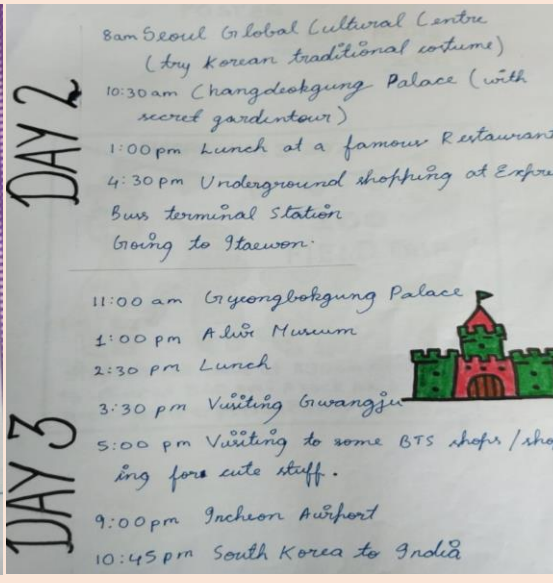 DAY 2
8am Seoul Global Cultural Centre
(try Korean traditional costume)
10:30am Changdeokgung Palace (with
secret gardentour)
1:00pm Lunch at a famous Restaurant
4:30 pm Underground shopping at Expre
Buss terminal Station
Going to Itaewon.
DAY 3
11:00 am Gyeongbokgung Palace
1:00 pm Alive Museum
2:30 pm Lunch
3:30 pm Visiting Gwangju
5:00 pm Visiting to some BTS shops / shop
ing for cute stuff.
9:00pm Incheon Airport
10:45pm South Korea to India